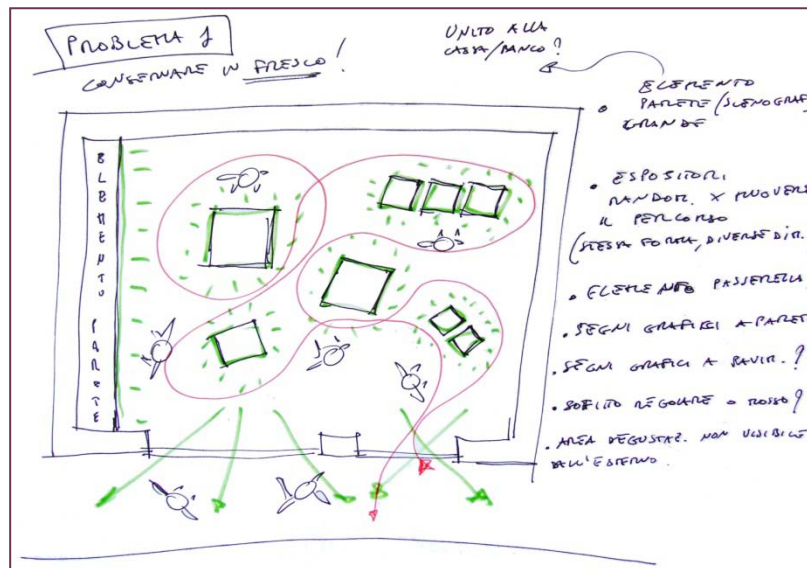 PROBLEMA 1
CONSERVARE IN FRESCO!
UNITO ALLA
CASSA/BANCO?
ELEMENTO
PARETE (SCENOGRAF
GRANDE
• ESPOSITORI
RANDOM. X MUOVERE
IL PERCORSO
(STESSA FORMA, DIVERSE DIM.
• ELEMENTO PASSERELLA
• SEGNI GRAFICI A PARET
• SEGNI GRAFICI A PAVIM.?
• SOFFITO REGOLARE O MOSSO?
• AREA DEGUSTAZ. NON VISIBILE
DALL'ESTERNO.
ELEMENTO PARETE